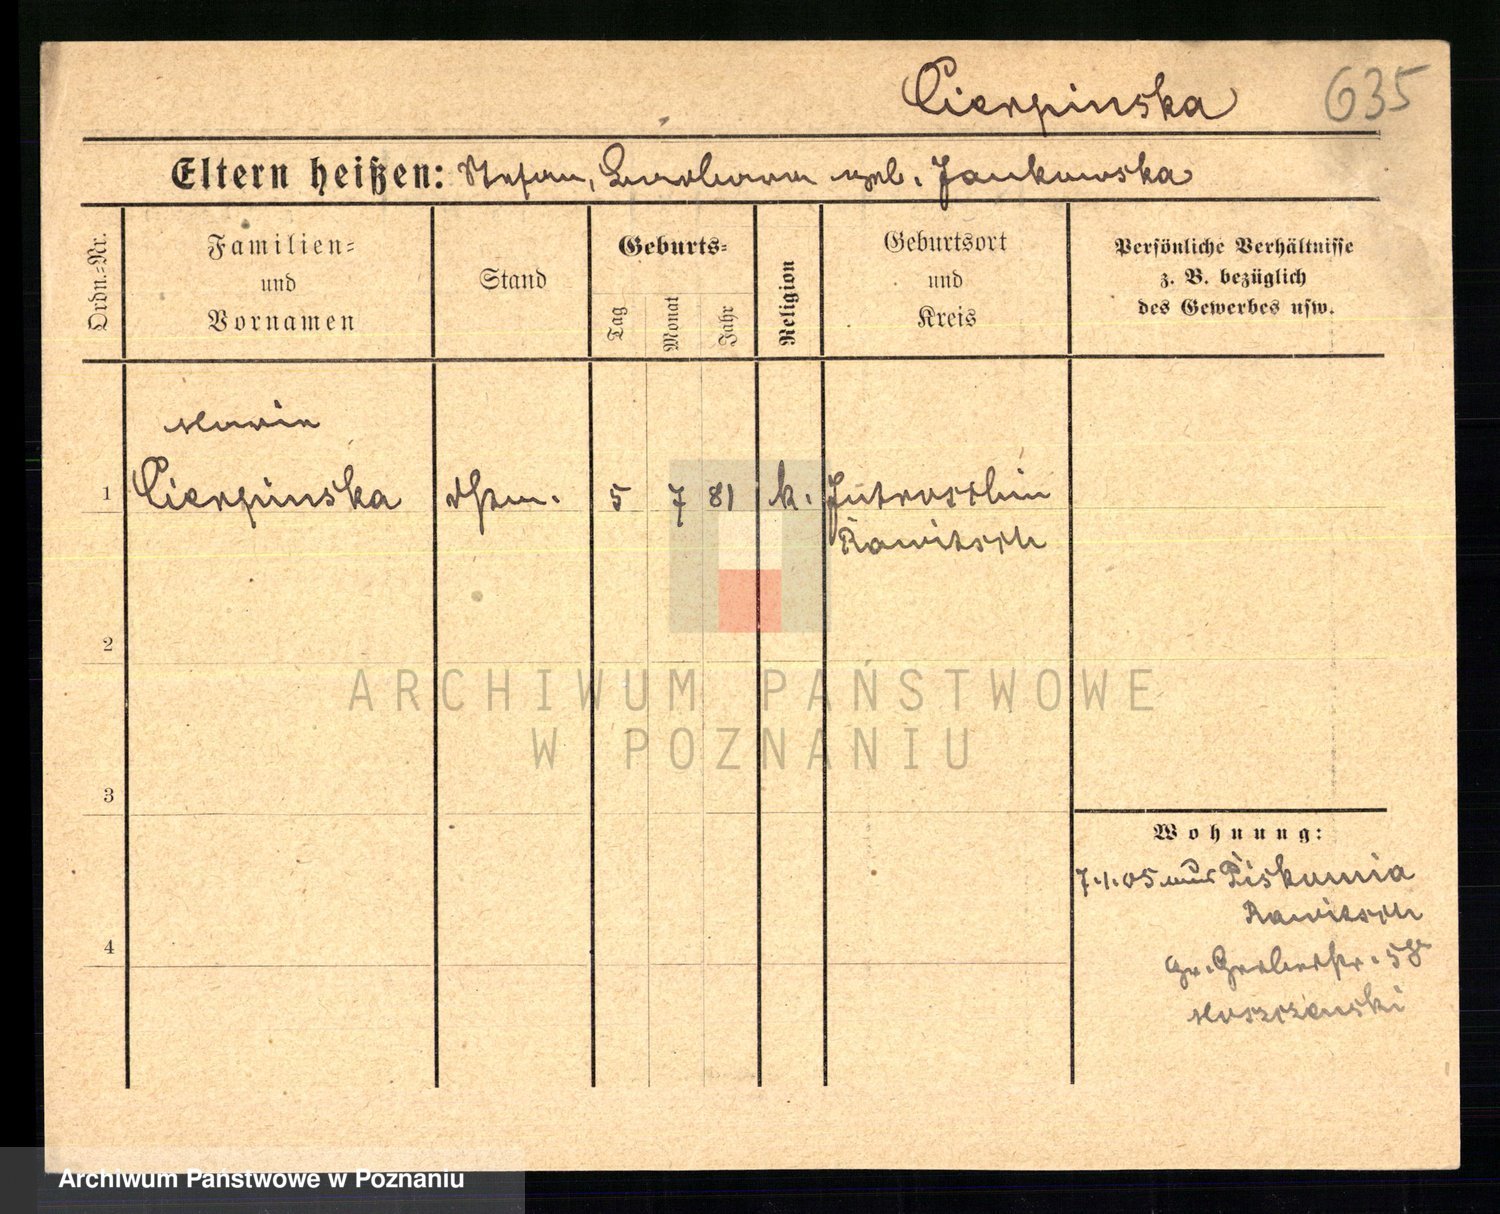 Cierpinska 635
Eltern heißen: Stefan, Barbara geb. Jankowska
Ordn.=Nr.
Familien=
und
Vornamen
Stand
Geburts=
Tag
Monat
Jahr
Religion
Geburtsort
und
Kreis
Persönliche Verhältnisse
z. B. bezüglich
des Gewerbes usw.
Marie
1 Cierpinska 5 7 81 k. Jutroschin
Rawitsch
2
3
4
Wohnung:
7.1.05 aus Piskornia
Rawitsch
Gr. Gerberstr. 5
Moszczenski
ARCHIWUM PAŃSTWOWE
W POZNANIU
Archiwum Państwowe w Poznaniu